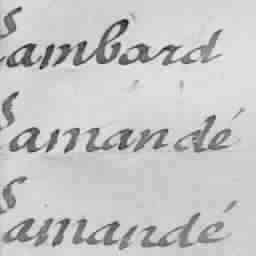 Lambard
Lamandé
Lamandé